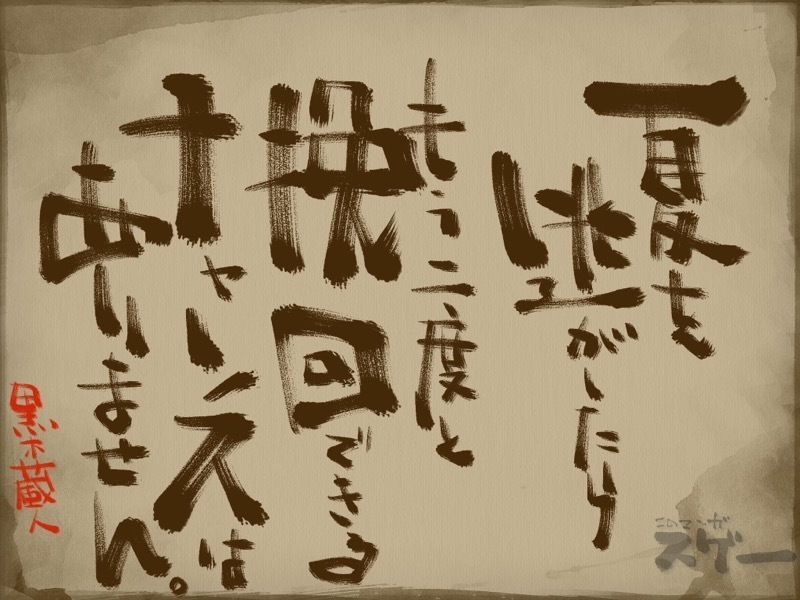 夏を
逃がしたら
もう二度と
挽回できる
チャンスは
ありません。
黒木蔵人
このマンガ
スゲー